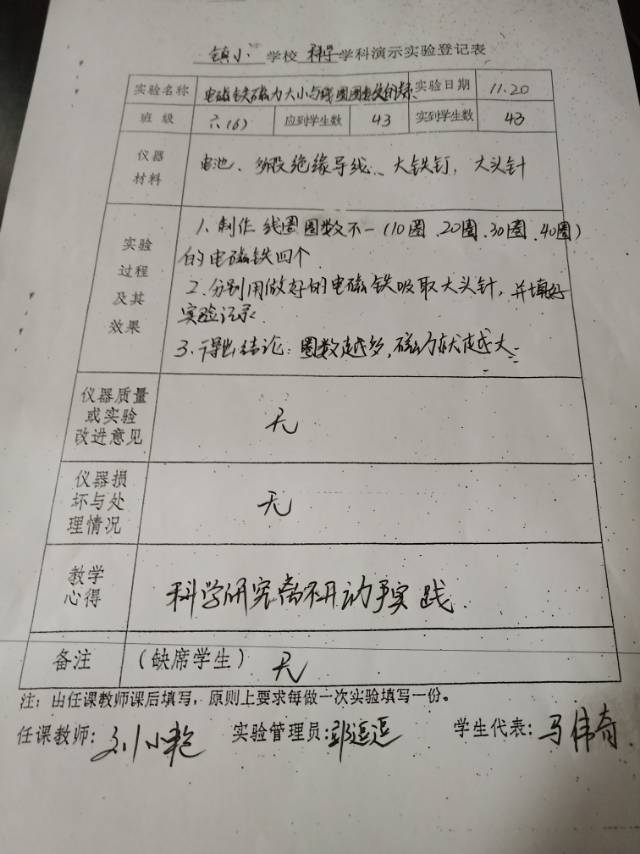 镇小 学校 科学 学科演示实验登记表
实验名称 电磁铁磁力大小与线圈圈数的关系 实验日期 11.20
班级 六(6) 应到学生数 43 实到学生数 43
仪器 电池、多股绝缘导线、大铁钉，大头针
材料
实验 1.制作线圈圈数不一(10圈、20圈、30圈、40圈)
过程 的电磁铁四个
及其 2.分别用做好的电磁铁吸取大头针，并填好
效果 实验记录.
3.得出结论：圈数越多，磁力就越大.
仪器质量
或实验 无
改进意见
仪器损
坏与处 无
理情况
教学 科学研究离不开动手实践.
心得
备注 (缺席学生) 无
注：由任课教师课后填写，原则上要求每做一次实验填写一份。
任课教师：刘小艳 实验管理员：邱逗逗 学生代表：马伟奇